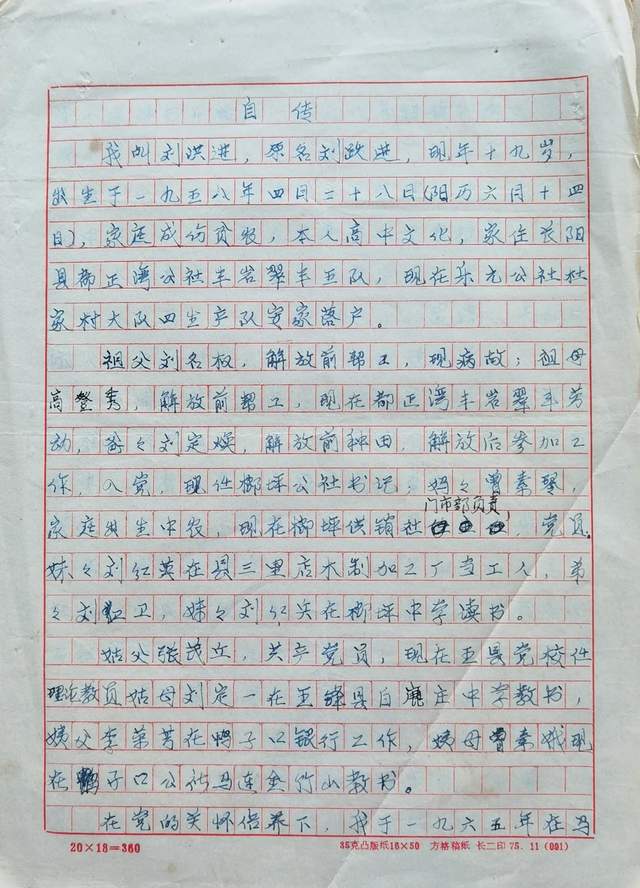 自传
我叫刘洪进，原名刘跃进，现年十九岁，
出生于一九五八年四月二十八日(阳历六月十四
日)，家庭成份贫农，本人高中文化，家住长阳
县都正湾公社丰岩翠丰五队，现在乐元公社杜
家村大队四生产队安家落户。
祖父刘名权，解放前帮工，现病故；祖母
高登秀，解放前帮工，现在都正湾丰岩翠丰劳
动，爸々刘定焕，解放前种田，解放后参加工
作，入党，现任榔坪公社书记；妈々曾素琴，
门市部负责，
家庭出生中农，现在榔坪供销社，党员。
妹々刘红英在县三里店木制加工厂当工人，弟
々刘红卫，妹々刘红兵在榔坪中学读书。
姑父张茂立，共产党员，现在五县党校任
理论教员姑母刘定一在五峰县白鹿庄中学教书，
姨父李策芳在鸭子口银行工作，姨母曾素娥现
在鸭子口公社马连垒竹山教书。
在党的关怀培养下，我于一九六五年在马
20×18=360
35克凸版纸16×50 方格稿纸 长二印75.11(001)